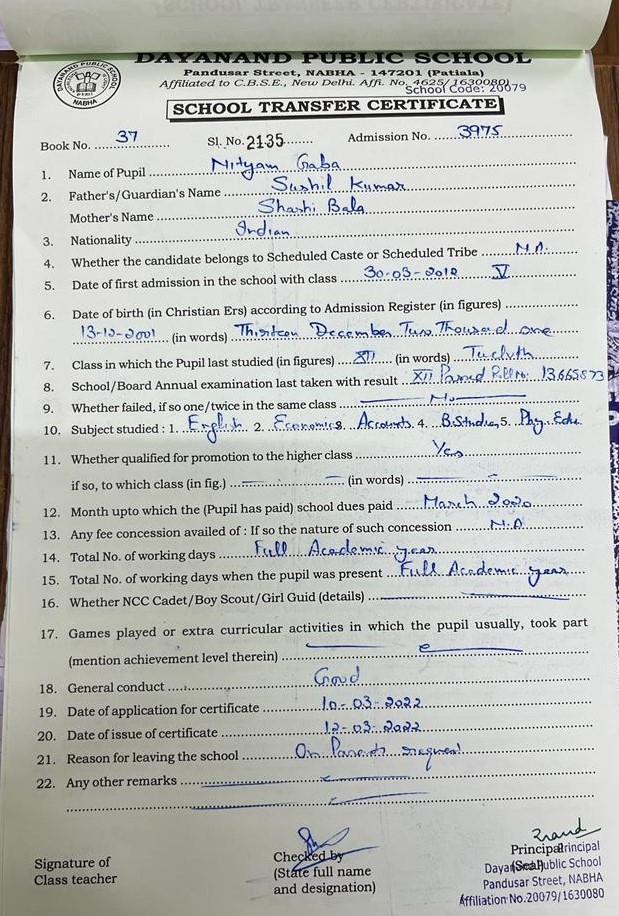 DAYANAND PUBLIC SCHOOL
DAYANAND PUBLIC SCHOOL
NABHA
Pandusar Street, NABHA - 147201 (Patiala)
Affiliated to C.B.S.E., New Delhi. Affi. No. 4625/1630080
School Code: 20079
SCHOOL TRANSFER CERTIFICATE
Book No. 37 Sl. No. 2135 Admission No. 3975
1. Name of Pupil Nityam Gaba
2. Father's/Guardian's Name Sushil Kumar
Mother's Name Shashi Bala
3. Nationality Indian
4. Whether the candidate belongs to Scheduled Caste or Scheduled Tribe N.A.
5. Date of first admission in the school with class 30-03-2012 V
6. Date of birth (in Christian Ers) according to Admission Register (in figures)
13-12-2001 (in words) Thirteen December Two Thousand one
7. Class in which the Pupil last studied (in figures) XII (in words) Twelvth
8. School/Board Annual examination last taken with result XII Passed R.No. 13665573
9. Whether failed, if so one/twice in the same class No
10. Subject studied : 1. English 2. Economics 3. Accounts 4. B.Studies, 5. Phy. Edu.
11. Whether qualified for promotion to the higher class Yes
if so, to which class (in fig.) (in words)
12. Month upto which the (Pupil has paid) school dues paid March 2020
13. Any fee concession availed of : If so the nature of such concession N.A
14. Total No. of working days Full Academic year
15. Total No. of working days when the pupil was present Full Academic year
16. Whether NCC Cadet/Boy Scout/Girl Guid (details)
17. Games played or extra curricular activities in which the pupil usually, took part
(mention achievement level therein)
18. General conduct Good
19. Date of application for certificate 10-03-2022
20. Date of issue of certificate 12-03-2022
21. Reason for leaving the school On Parents request
22. Any other remarks
Signature of
Class teacher
Checked by
(State full name
and designation)
Principal
(Seal)
Principal
Dayanand Public School
Pandusar Street, NABHA
Affiliation No.20079/1630080